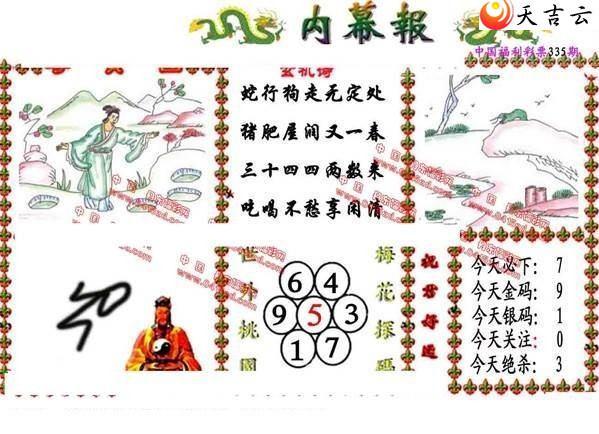 内幕報
天吉云
中国福利彩票335期
玄机诗
蛇行狗走无定处
猪肥屋润又一春
三十四四两数来
吃喝不愁享闲清
世外桃園
6 4
9 5 3
1 7
梅花探码
祝君好运
今天必下: 7
今天金码: 9
今天银码: 1
今天关注: 0
今天绝杀: 3